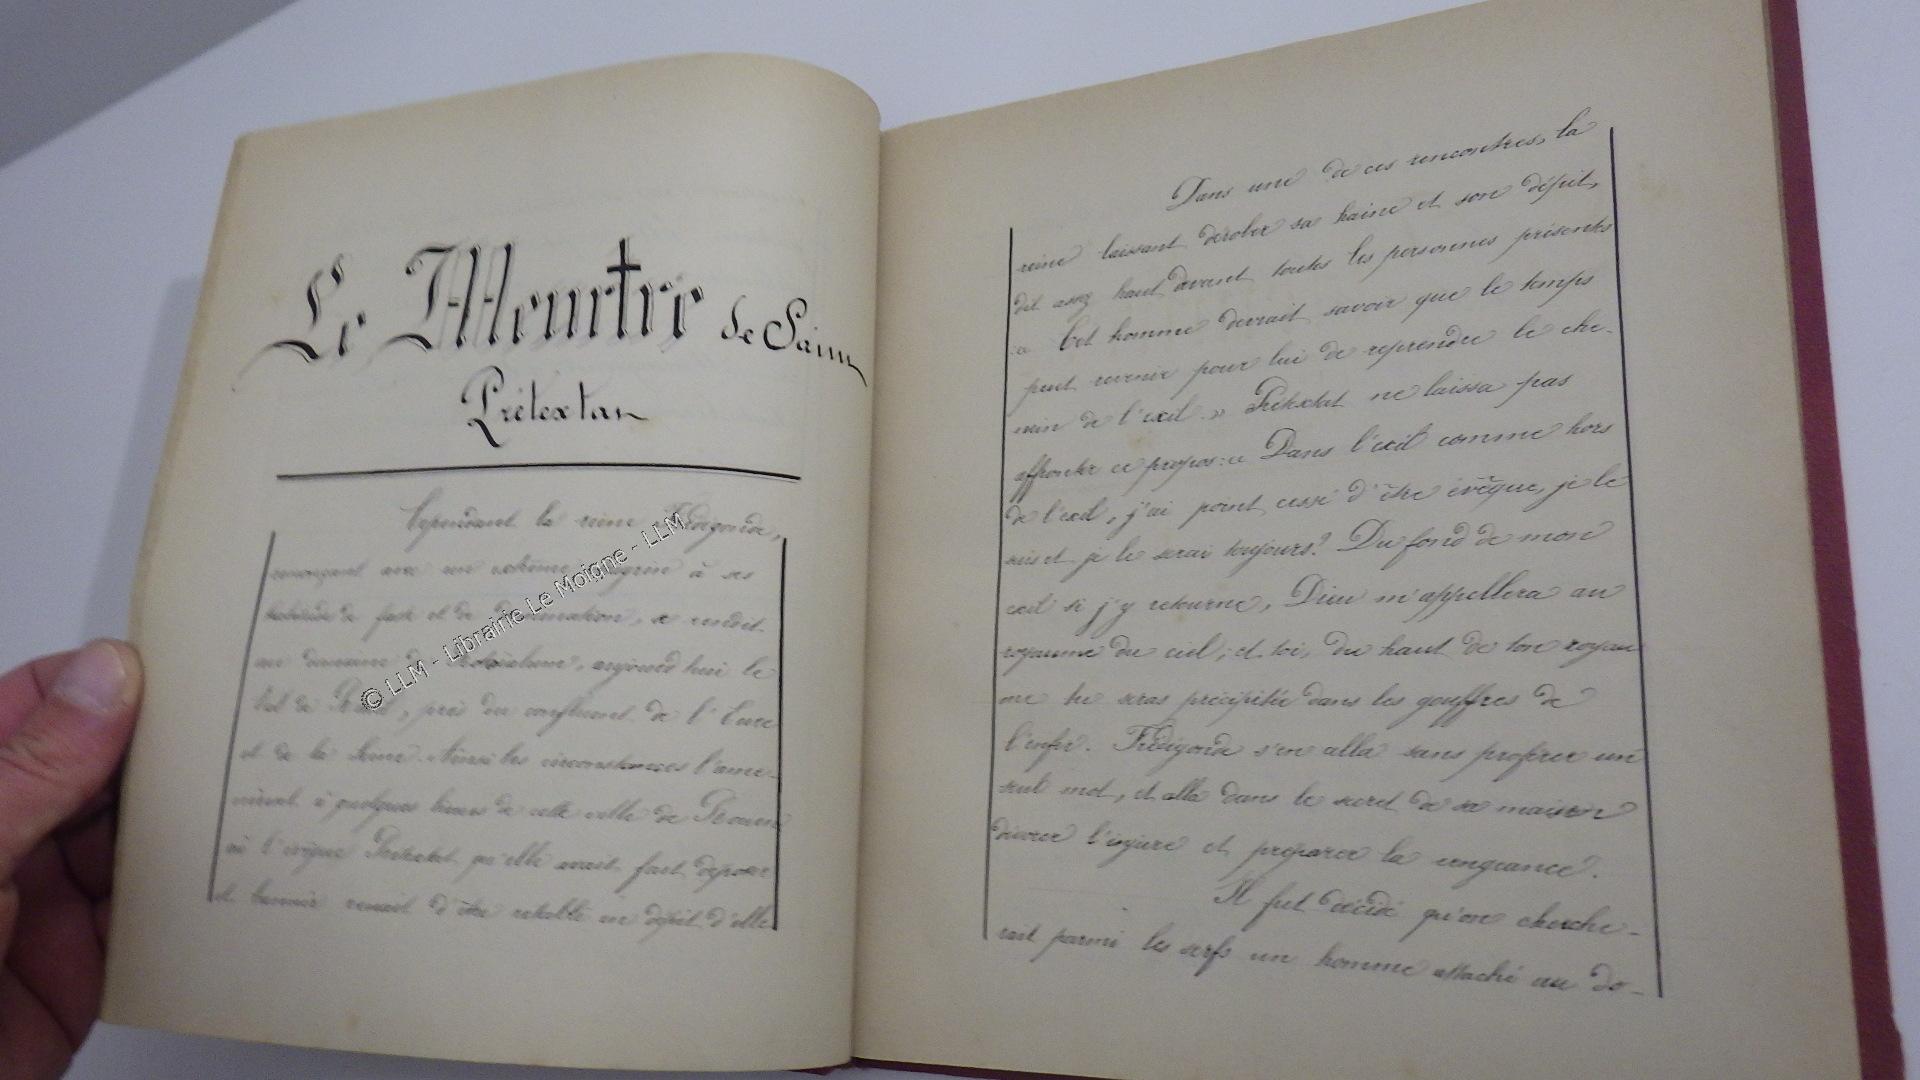 Le Meurtre de Sain
Prétextat
Cependant la reine Frédégonde,
renonçant avec un extrême chagrin à ses
habitudes de faste et de domination, se rendit
au domaine de Rotoialum, aujourd'hui le
Val de Reuil, près du confluent de l'Eure
et de la Seine. Ainsi les circonstances l'ame-
nèrent à quelques lieues de cette ville de Rouen
où l'évêque Prétextat qu'elle avait fait déposer
et bannir venait d'être rétabli en dépit d'elle
© LLM - Librairie Le Moigne - LLM
Dans une de ces rencontres, la
reine laissant dérober sa haine et son dépit,
dit assez haut devant toutes les personnes présentes
:« Cet homme devrait savoir que le temps
peut revenir pour lui de reprendre le che-
min de l'exil.» Prétextat ne laissa pas
affronter ce propos:« Dans l'exil comme hors
de l'exil, j'ai point cessé d'être évêque, je le
suis et je le serai toujours? Du fond de mon
exil si j'y retourne, Dieu m'appellera au
royaume du ciel, et toi, du haut de ton royau
me tu seras précipitée dans les gouffres de
l'enfer. Frédégonde s'en alla sans proférer un
seul mot, et alla dans le secret de sa maison
dévorer l'injure et préparer la vengeance?.
Il fut décidé qu'on cherche-
rait parmi les serfs un homme attaché au do-